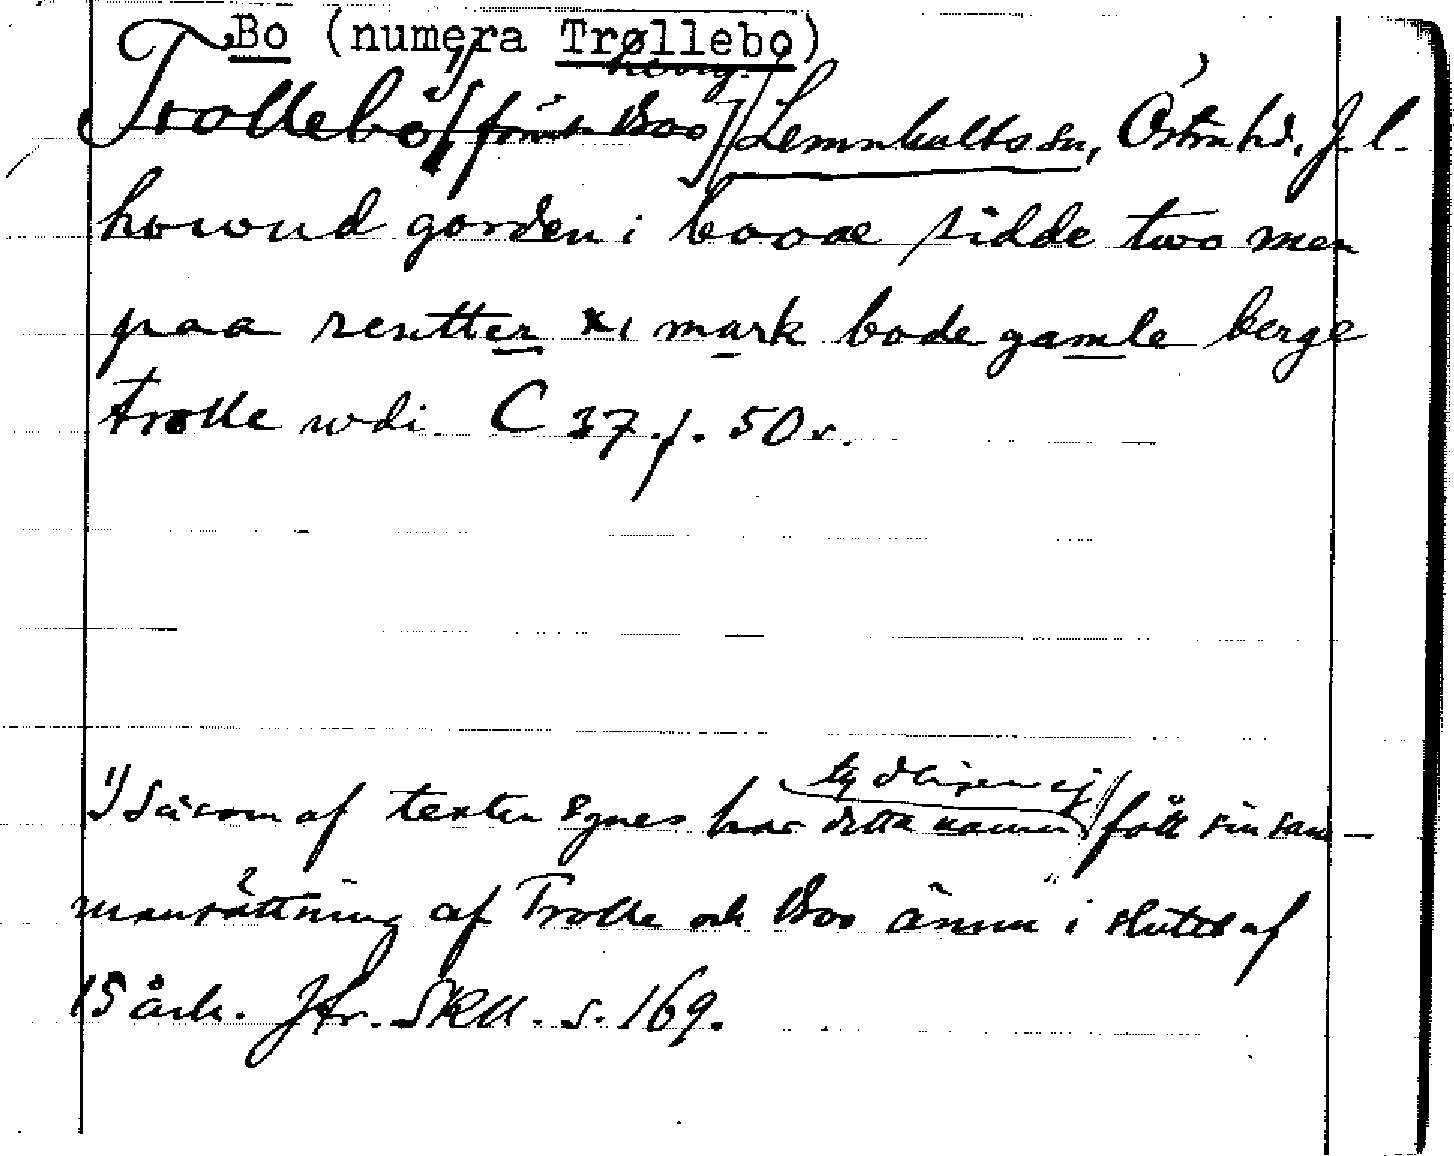 Bo (numera Trøllebo)
Trollebo¹⁾ [förut Boo] Lemnhults sn, Östra hd. J. l.
howud gorden i booae sidde two men
paa rentter xi mark bode gamle berge
trolle wdi. C 37 f. 50 v.
1) Såsom af texten synes har detta namn tydligen ej fått sin sam-
mansättning af Trolle och Boo ännu i slutet af
15 årh. Jfr. SRU. s. 169.